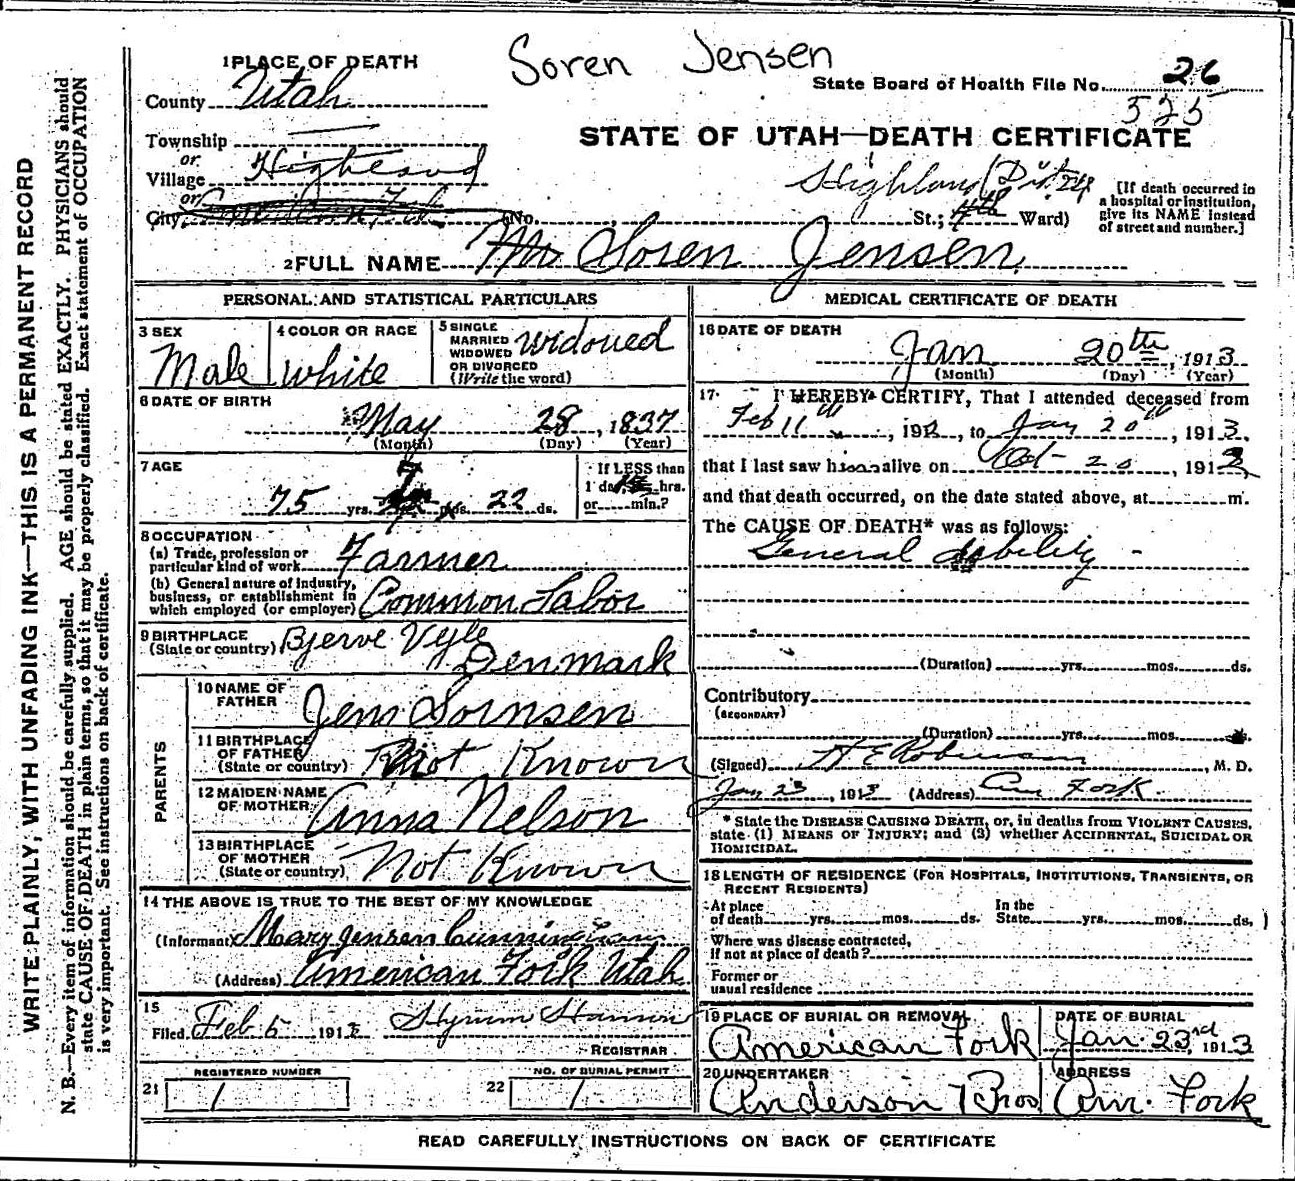 Soren Jensen
1 PLACE OF DEATH
State Board of Health File No. 26
County Utah
525
Township
STATE OF UTAH—DEATH CERTIFICATE
or
Village Highland
Highland Dist.
or
City American Fork (No. St.; 4th Ward)
[If death occurred in
a hospital or institution,
give its NAME instead
of street and number.]
2 FULL NAME Mr Soren Jensen
PERSONAL AND STATISTICAL PARTICULARS
3 SEX
Male
4 COLOR OR RACE
White
5 SINGLE
MARRIED
WIDOWED
OR DIVORCED
(Write the word)
widowed
6 DATE OF BIRTH
May 28, 1837
(Month) (Day) (Year)
7 AGE
75 yrs. 7 mos. 22 ds.
If LESS than
1 day, hrs.
or min.?
8 OCCUPATION
(a) Trade, profession or
particular kind of work Farmer
(b) General nature of industry,
business, or establishment in
which employed (or employer) Common Labor
9 BIRTHPLACE
(State or country) Bjerve Vyle
Denmark
PARENTS
10 NAME OF
FATHER Jens Sornsen
11 BIRTHPLACE
OF FATHER
(State or country) Not Known
12 MAIDEN NAME
OF MOTHER Anna Nelson
13 BIRTHPLACE
OF MOTHER
(State or country) Not Known
14 THE ABOVE IS TRUE TO THE BEST OF MY KNOWLEDGE
(Informant) Mary Jensen Cunningham
(Address) American Fork Utah
15
Filed Feb 5 1913 Hyrum
REGISTRAR
REGISTERED NUMBER
21 1
NO. OF BURIAL PERMIT
22 1
MEDICAL CERTIFICATE OF DEATH
16 DATE OF DEATH
Jan 20th, 1913
(Month) (Day) (Year)
17 I HEREBY CERTIFY, That I attended deceased from
Feb 11th, 1912, to Jan 20th, 1913,
that I last saw him alive on Oct 20, 1912,
and that death occurred, on the date stated above, at m.
The CAUSE OF DEATH* was as follows:
General debility -
(Duration) yrs. mos. ds.
Contributory
(SECONDARY)
(Duration) yrs. mos. ds.
(Signed) , M. D.
Jan 23, 1913 (Address) Am Fork.
* State the DISEASE CAUSING DEATH, or, in deaths from VIOLENT CAUSES,
state (1) MEANS OF INJURY; and (2) whether ACCIDENTAL, SUICIDAL OR
HOMICIDAL.
18 LENGTH OF RESIDENCE (FOR HOSPITALS, INSTITUTIONS, TRANSIENTS, OR
RECENT RESIDENTS)
At place
of death yrs. mos. ds.
In the
State yrs. mos. ds. )
Where was disease contracted,
if not at place of death?
Former or
usual residence
19 PLACE OF BURIAL OR REMOVAL
American Fork
DATE OF BURIAL
Jan. 23rd, 1913
20 UNDERTAKER
Anderson Bros
ADDRESS
Am. Fork
READ CAREFULLY INSTRUCTIONS ON BACK OF CERTIFICATE
WRITE PLAINLY, WITH UNFADING INK—THIS IS A PERMANENT RECORD
N. B.—Every item of information should be carefully supplied. AGE should be stated EXACTLY. PHYSICIANS should
state CAUSE OF DEATH in plain terms, so that it may be properly classified. Exact statement of OCCUPATION
is very important. See instructions on back of certificate.